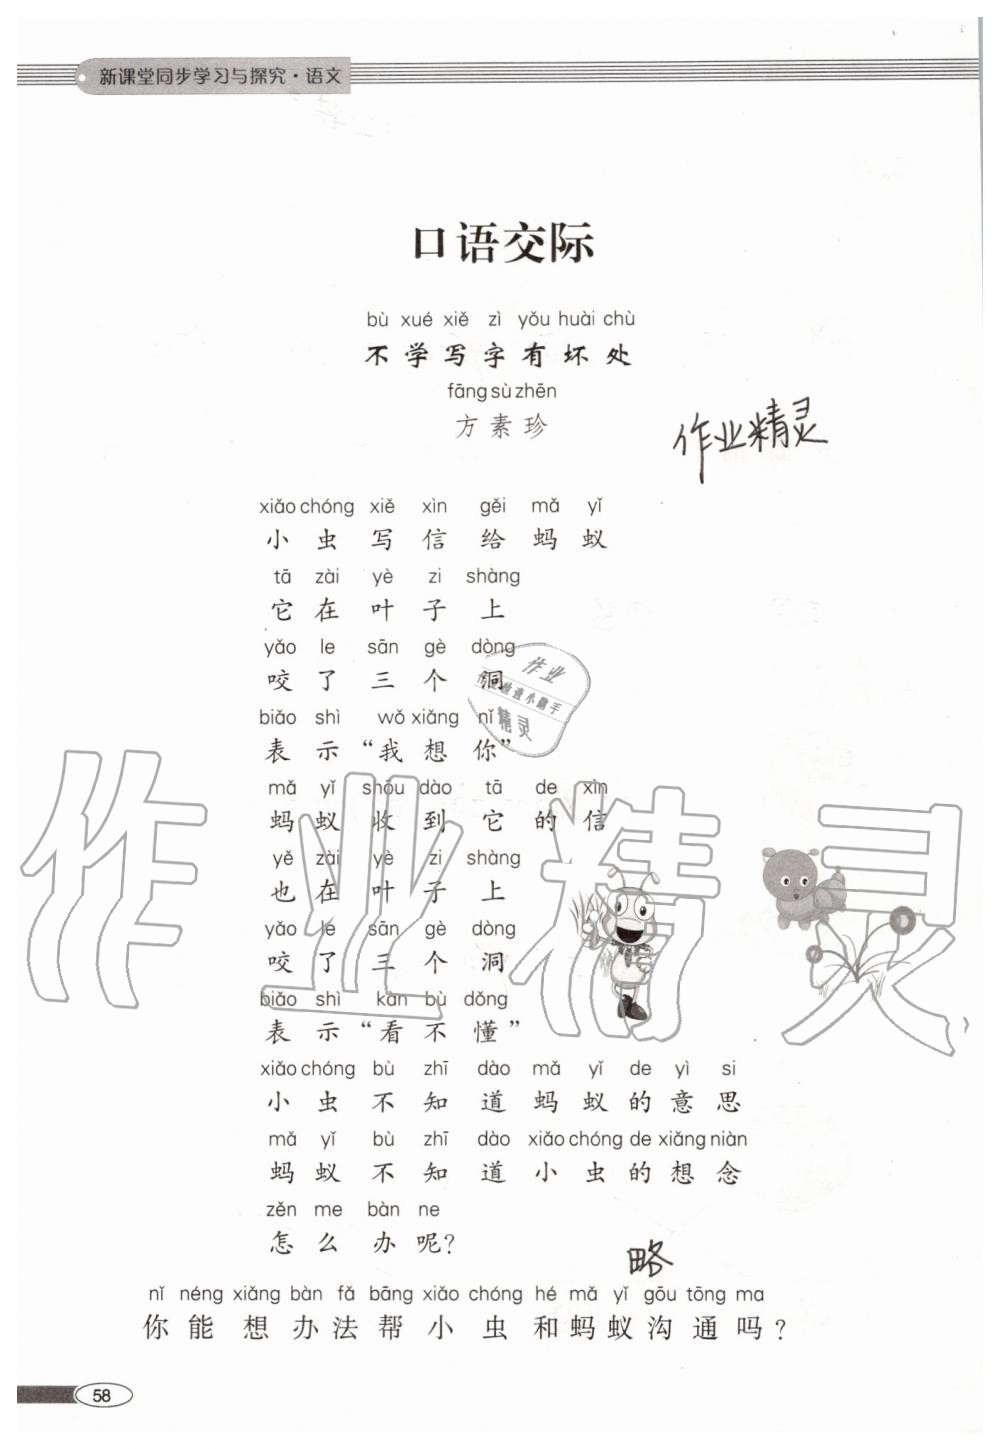 新课堂同步学习与探究·语文
口语交际
bù xué xiě zì yǒu huài chù
不学写字有坏处
fāng sù zhēn
方素珍
作业精灵
xiǎo chóng xiě xìn gěi mǎ yǐ
小虫写信给蚂蚁
tā zài yè zi shàng
它在叶子上
yǎo le sān gè dòng
咬了三个洞
作业
作业检查小助手
精灵
biǎo shì wǒ xiǎng nǐ
表示“我想你”
mǎ yǐ shōu dào tā de xìn
蚂蚁收到它的信
yě zài yè zi shàng
也在叶子上
作业精灵
yǎo le sān gè dòng
咬了三个洞
biǎo shì kàn bù dǒng
表示“看不懂”
xiǎo chóng bù zhī dào mǎ yǐ de yì si
小虫不知道蚂蚁的意思
mǎ yǐ bù zhī dào xiǎo chóng de xiǎng niàn
蚂蚁不知道小虫的想念
zěn me bàn ne
怎么办呢?
略
nǐ néng xiǎng bàn fǎ bāng xiǎo chóng hé mǎ yǐ gōu tōng ma
你能想办法帮小虫和蚂蚁沟通吗?
58